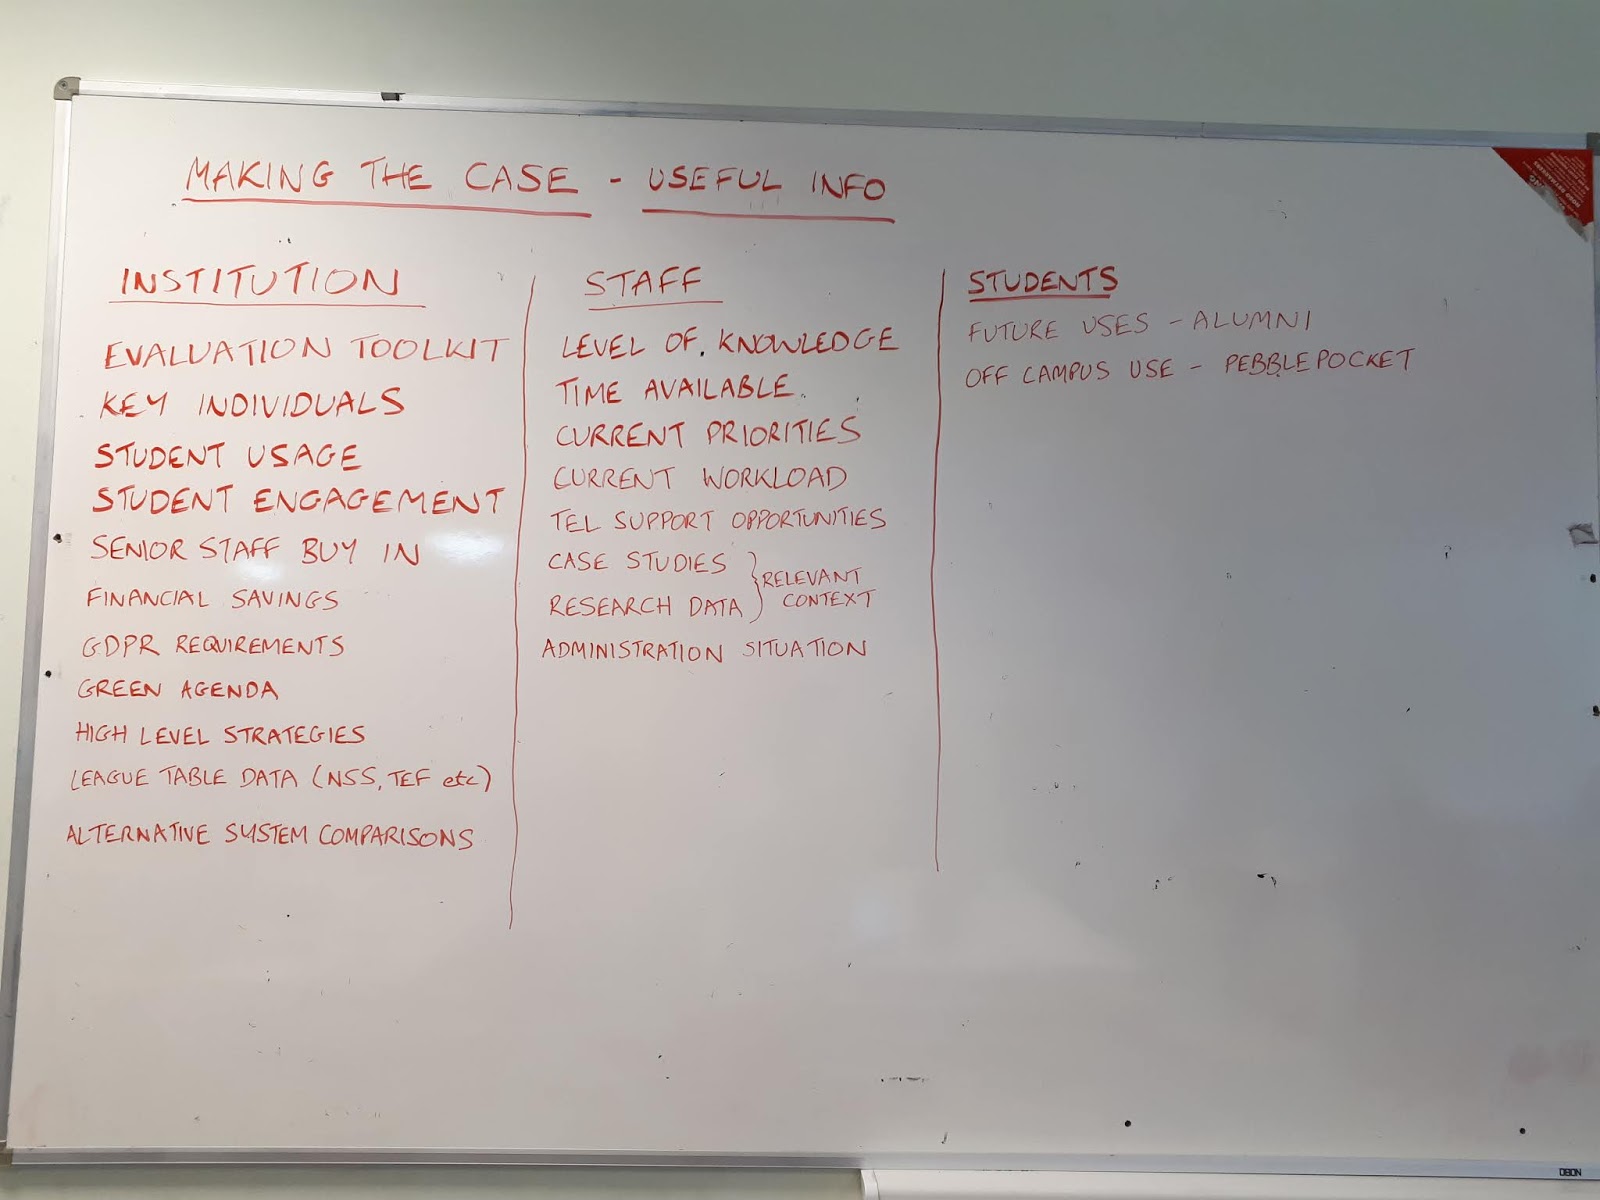 MAKING THE CASE - USEFUL INFO
INSTITUTION
EVALUATION TOOLKIT
KEY INDIVIDUALS
STUDENT USAGE
STUDENT ENGAGEMENT
SENIOR STAFF BUY IN
FINANCIAL SAVINGS
GDPR REQUIREMENTS
GREEN AGENDA
HIGH LEVEL STRATEGIES
LEAGUE TABLE DATA (NSS, TEF etc)
ALTERNATIVE SYSTEM COMPARISONS
STAFF
LEVEL OF KNOWLEDGE
TIME AVAILABLE
CURRENT PRIORITIES
CURRENT WORKLOAD
TEL SUPPORT OPPORTUNITIES
CASE STUDIES
RESEARCH DATA
RELEVANT
CONTEXT
ADMINISTRATION SITUATION
STUDENTS
FUTURE USES - ALUMNI
OFF CAMPUS USE - PEBBLEPOCKET